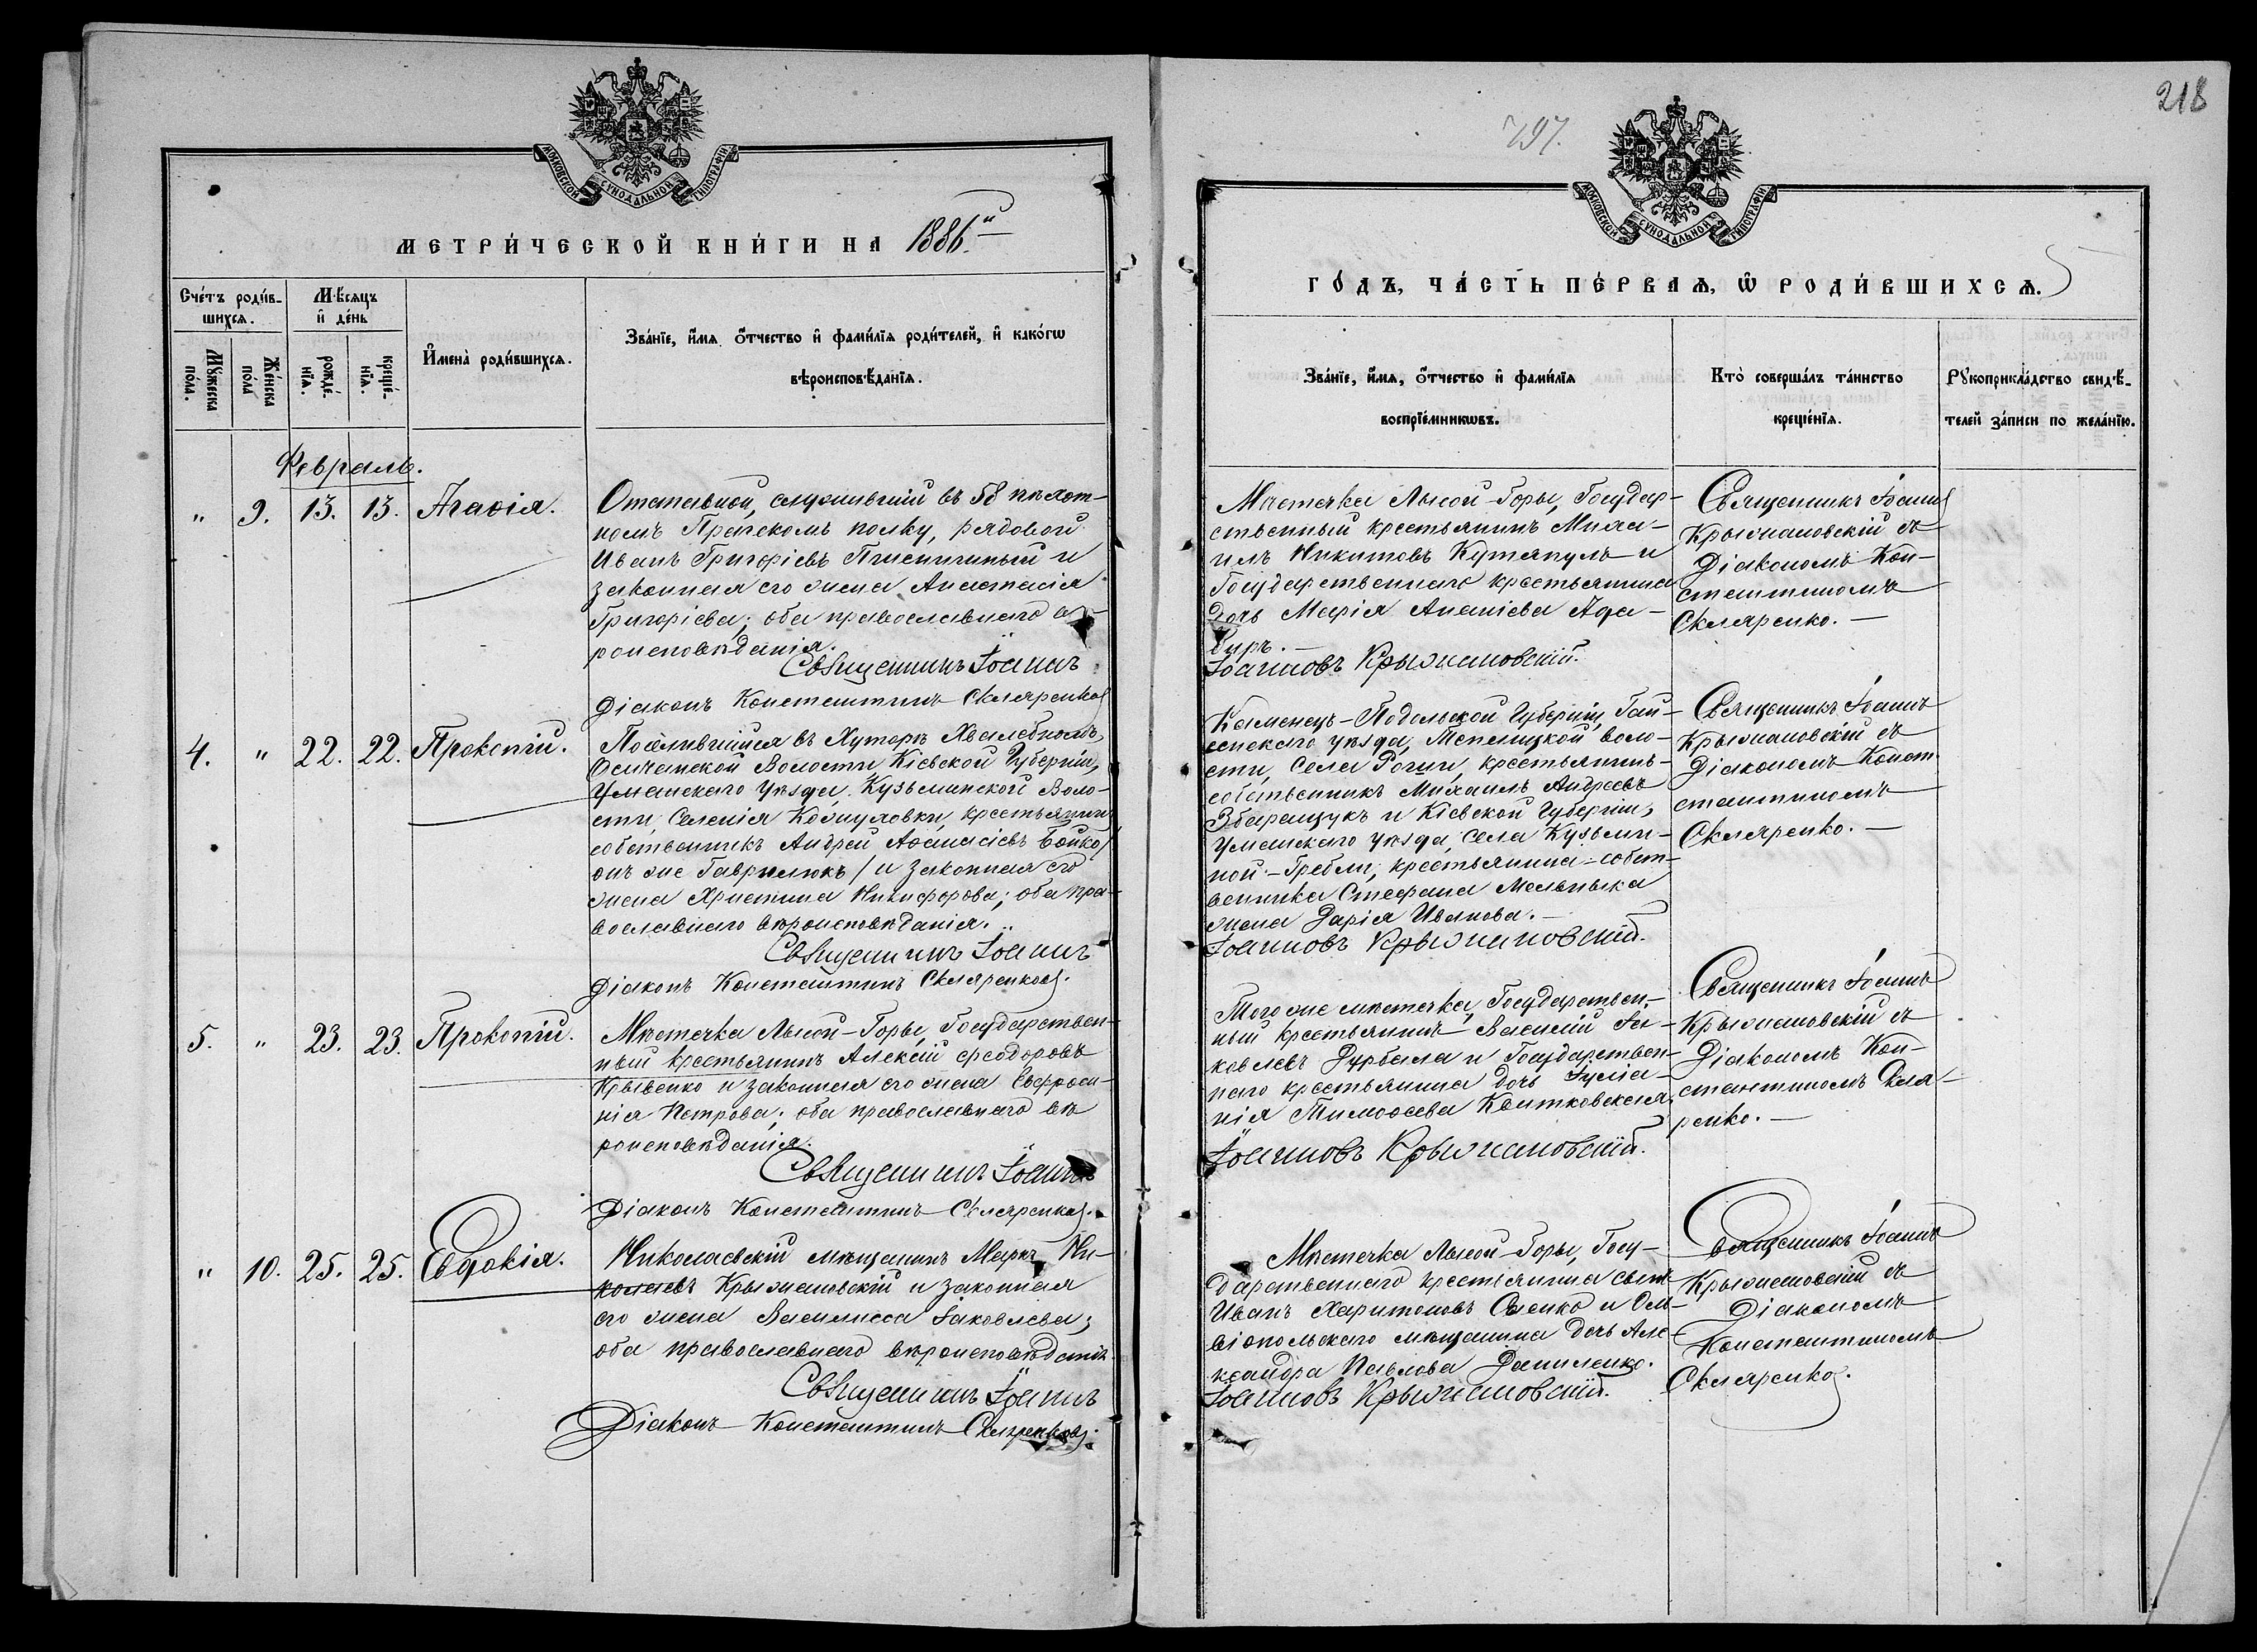 218
797.
МОСКОВСКОЙ СѴНОДАЛЬНОЙ ТИПОГРАФІИ
МЕТРИ́ЧЕСКОЙ КНИ́ГИ НА 1886.й
Сче́тъ роди́в-
шихсѧ.
Мѣ́сѧцъ
и҆ де́нь
Мꙋ́жеска
по́ла.
Же́нска
по́ла
рожде́-
нїѧ.
креще́-
нїѧ.
И҆мена̀ роди́вшихсѧ.
Зва́нїе, и҆́мѧ ѻ҆́тчество и҆ фами́лїѧ роди́телей, и҆ како́гѡ
вѣроисповѣ́данїѧ.
Февраль.
" 9. 13. 13. Агаѳія.
Отставной, служившій въ 58 пѣхот-
номъ Прагскомъ полку, рядовой
Иванъ Григоріевъ Пшеничный и
законная его жена Анастасія
Григоріева; оба православнаго вѣ-
роисповѣданія.
Священникъ Іоаннъ
Діаконъ Константинъ Скляренко.
4. " 22. 22. Прокопій.
Поселившійся въ Хуторѣ
Волости Кіевской Губерніи,
Уманскаго уѣзда, Кузьминской Воло-
сти, Селенія Кожуховки, крестьянинъ
собственникъ Андрей Аѳанасіевъ Бойко/
онъ же Гаврилюкъ/ и законная его
жена Христина Никифорова; оба пра-
вославнаго вѣроисповѣданія.
Священникъ Іоаннъ
Діаконъ Константинъ Скляренко.
5. " 23. 23. Прокопій.
Мѣстечка Лысой-Горы, Государствен-
ный крестьянинъ Алексій Ѳеодоровъ
Кривенко и законная его жена Евфроси-
нія Петрова; оба православнаго вѣ-
роисповѣданія.
Священникъ Іоаннъ
Діаконъ Константинъ Скляренко.
" 10. 25. 25. Евдокія.
Николаевскій мѣщанинъ Маркъ Ни-
колаевъ Крыжановскій и законная
его жена Василисса Іаковлева;
оба православнаго вѣроисповѣданія.
Священникъ Іоаннъ
Діаконъ Константинъ Скляренко.
МОСКОВСКОЙ СѴНОДАЛЬНОЙ ТИПОГРАФІИ
ГО́ДЪ, ЧА́СТЬ ПЕ́РВАѦ, Ѡ҆ РОДИ́ВШИХСѦ.
Зва́нїе, и҆́мѧ, ѻ҆́тчество и҆ фами́лїѧ
воспрїе́мникѡвъ.
Кто̀ соверша́лъ та́инство
креще́нїѧ.
Рꙋкоприкла́дство свидѣ́-
телей за́писи по жела́нїю.
Мѣстечка Лысой-Горы, Государ-
ственный крестьянинъ Миха-
илъ Никитовъ и
Государственнаго крестьянина
дочь Марія Ананіева
Іоанновъ Крыжановскій.
Священникъ Іоаннъ
Крыжановскій съ
Діакономъ Кон-
стантиномъ
Скляренко.
Каменецъ-Подольской Губерніи, Гай-
сенскаго уѣзда, Теплицкой воло-
сти, Села крестьянинъ-
собственникъ Михаилъ Андреевъ
Збаращукъ и Кіевской Губерніи,
Уманскаго уѣзда, села Кузьми-
ной-Гребли, крестьянина-собст-
венника Стефана Мельныка
жена Дарія Иванова.
Іоанновъ Крыжановскій.
Священникъ Іоаннъ
Крыжановскій съ
Діакономъ Конст-
стантиномъ
Скляренко.
Того же мѣстечка, Государствен-
ный крестьянинъ Василій Іа-
ковлевъ Дурбала и Государствен-
наго крестьянина дочь Іуліа-
нія Тимоѳеева Квитковская.
Іоанновъ Крыжановскій.
Священникъ Іоаннъ
Крыжановскій съ
Діакономъ Кон-
стантиномъ Скля-
ренко.
Мѣстечка Лысой-Горы, Госу-
дарственнаго крестьянина сынъ
Иванъ Харитоновъ и Оль-
віопольскаго мѣщанина дочь Але-
ксандра Павлова Даниленко.
Іоанновъ Крыжановскій.
Священникъ Іоаннъ
Крыжановскій съ
Діакономъ
Константиномъ
Скляренко.